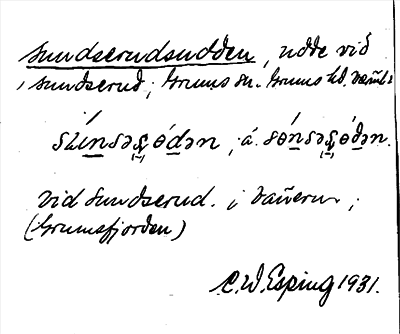 Sundserudsudden, udde vid
Sundserud, Grums sn. Grums hd. Värml.
sɯ́nsəʂɵ́dən, á. sɵ́nsəʂɵ́dən.
vid Sundserud. i Vänern,
(Grumsfjorden)
C.W. Esping 1931.